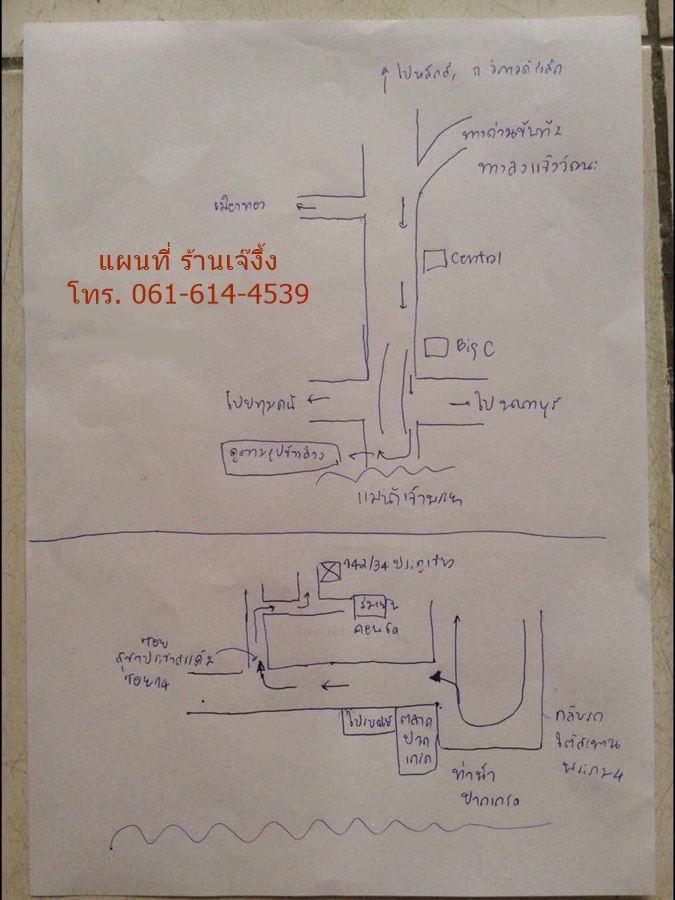 ไปหลักสี่ ถ. วิภาวดีรังสิต
ทางด่วนขั้นที่ 2
ทางลงแจ้งวัฒนะ
เมืองทอง
แผนที่ ร้านเจ๊งิ้ง
โทร. 061-614-4539
Central
Big C
ไปปทุมธานี
ไปนนทบุรี
ดูตามรูปข้างล่าง
แม่น้ำเจ้าพระยา
342/34 ประตูเขียว
ร่มเย็น
คอนโด
ซอย
สุขาประชาสรรค์ 2
ซอย 14
ไปรษณีย์
ตลาด
ปาก
เกร็ด
กลับรถ
ใต้สะพาน
พระราม 4
ท่าน้ำ
ปากเกร็ด